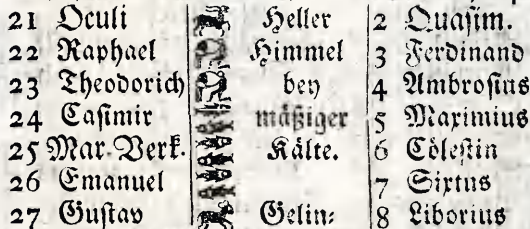 21 Oculi Heller 2 Quasim.
22 Raphael Himmel 3 Ferdinand
23 Theodorich bey 4 Ambrosius
24 Casimir mäßiger 5 Maximius
25 Mar. Verk. Kälte. 6 Cölestin
26 Emanuel 7 Sixtus
27 Gustav Gelin: 8 Liborius